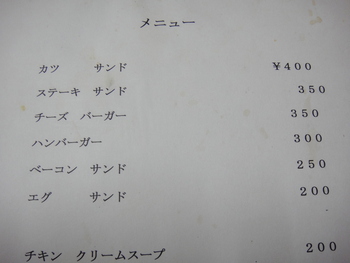 メニュー
カツ サンド ¥400
ステーキ サンド 350
チーズ バーガー 350
ハンバーガー 300
ベーコン サンド 250
エグ サンド 200
チキン クリームスープ 200